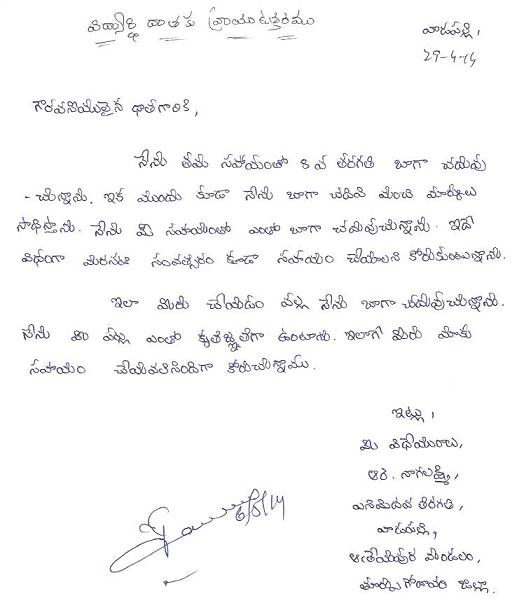 విద్యార్థి దాతకు వ్రాయు ఉత్తరము
వాడపల్లి,
29-4-14
గౌరవనీయులైన దాతగారికి,
నేను తమ సహాయంతో 8 వ తరగతి బాగా చదువు
- చున్నాను. ఇక ముందు కూడా నేను బాగా చదివి మంచి మార్కులు
సాధిస్తాను. నేను మీ సహాయంతో ఎంతో బాగా చదువుచున్నాను. ఇదే
విధంగా మరుసటి సంవత్సరం కూడా సహాయం చేయాలని కోరుకుంటున్నాను.
ఇలా మీరు చేయడం వల్ల నేను బాగా చదువుచున్నాను.
నేను మీ పట్ల ఎంతో కృతజ్ఞతగా ఉంటాను. ఇలాగే మీరు మాకు
సహాయం చేయవలసిందిగా కోరుచున్నాము.
ఇట్లు,
మీ విధేయురాలు,
ఆర్. నాగలక్ష్మి,
ఎనిమిదవ తరగతి,
వాడపల్లి,
ఆత్రేయపురం మండలం,
తూర్పుగోదావరి జిల్లా.
6/8/14